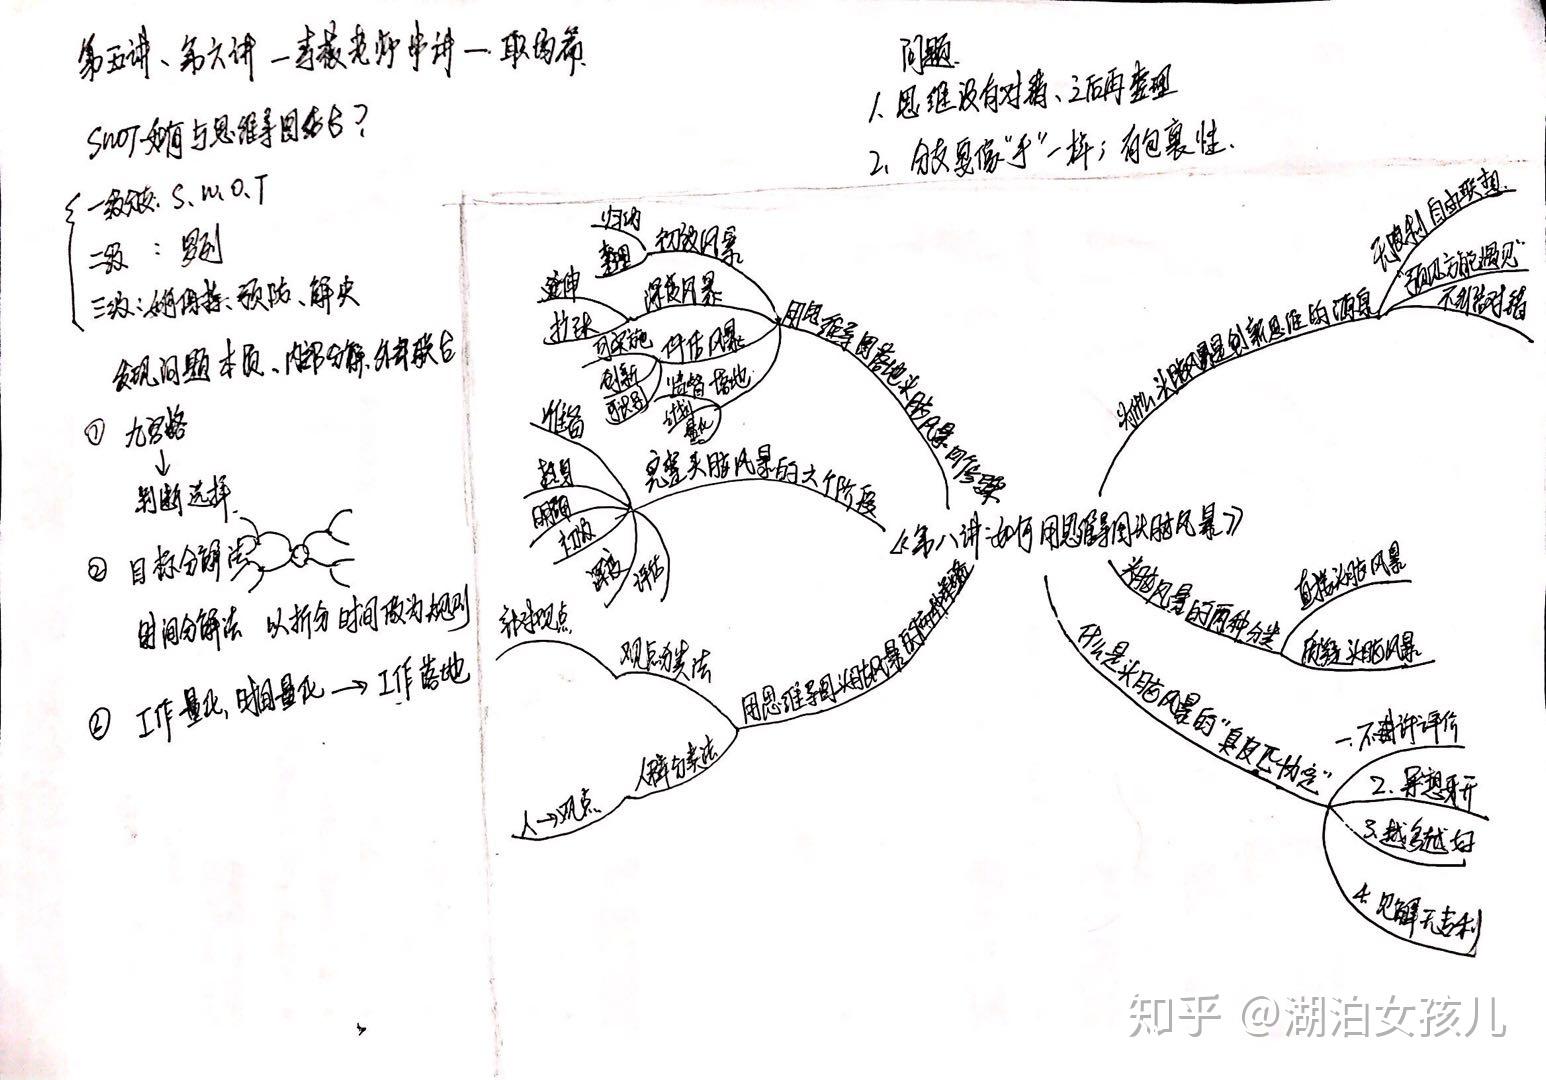 第五讲、第六讲 — 李薇老师串讲 — 职场篇
SWOT如何与思维导图结合?
一级分支: S、W、O、T
二级 : 罗列
三级: 如何保持、预防、解决
发现问题本质、内部分解、外部联合
① 九宫格
↓
判断选择
② 目标分解法
时间分解法 以拆分时间做为规则
② 工作量化, 时间量化 → 工作落地
问题
1、思维没有对错、之后再整理
2、分支要像"手"一样; 有包裹性.
《第八讲: 如何用思维导图头脑风暴》
为什么头脑风暴是创新思维的源泉
无限制自由联想
"预见方能遇见"
不纠结对错
头脑风暴的两种分类
直接头脑风暴
质疑头脑风暴
什么是头脑风暴的"真皮匹协定"
一、不对评价
2、异想天开
3、越多越好
4、见解无专利
用思维导图落地头脑风暴的
初级风暴
归纳
整理
深度风暴
延伸
拉球
评估风暴
可实施
创新
可识别
监督落地
计划
量化
完整头脑风暴的六个阶段
准备
热身
明确
初级
深度
评估
用思维导图头脑风暴的两种
观点分类法
针对观点
人群分类法
人→观点
知乎 @湖泊女孩儿